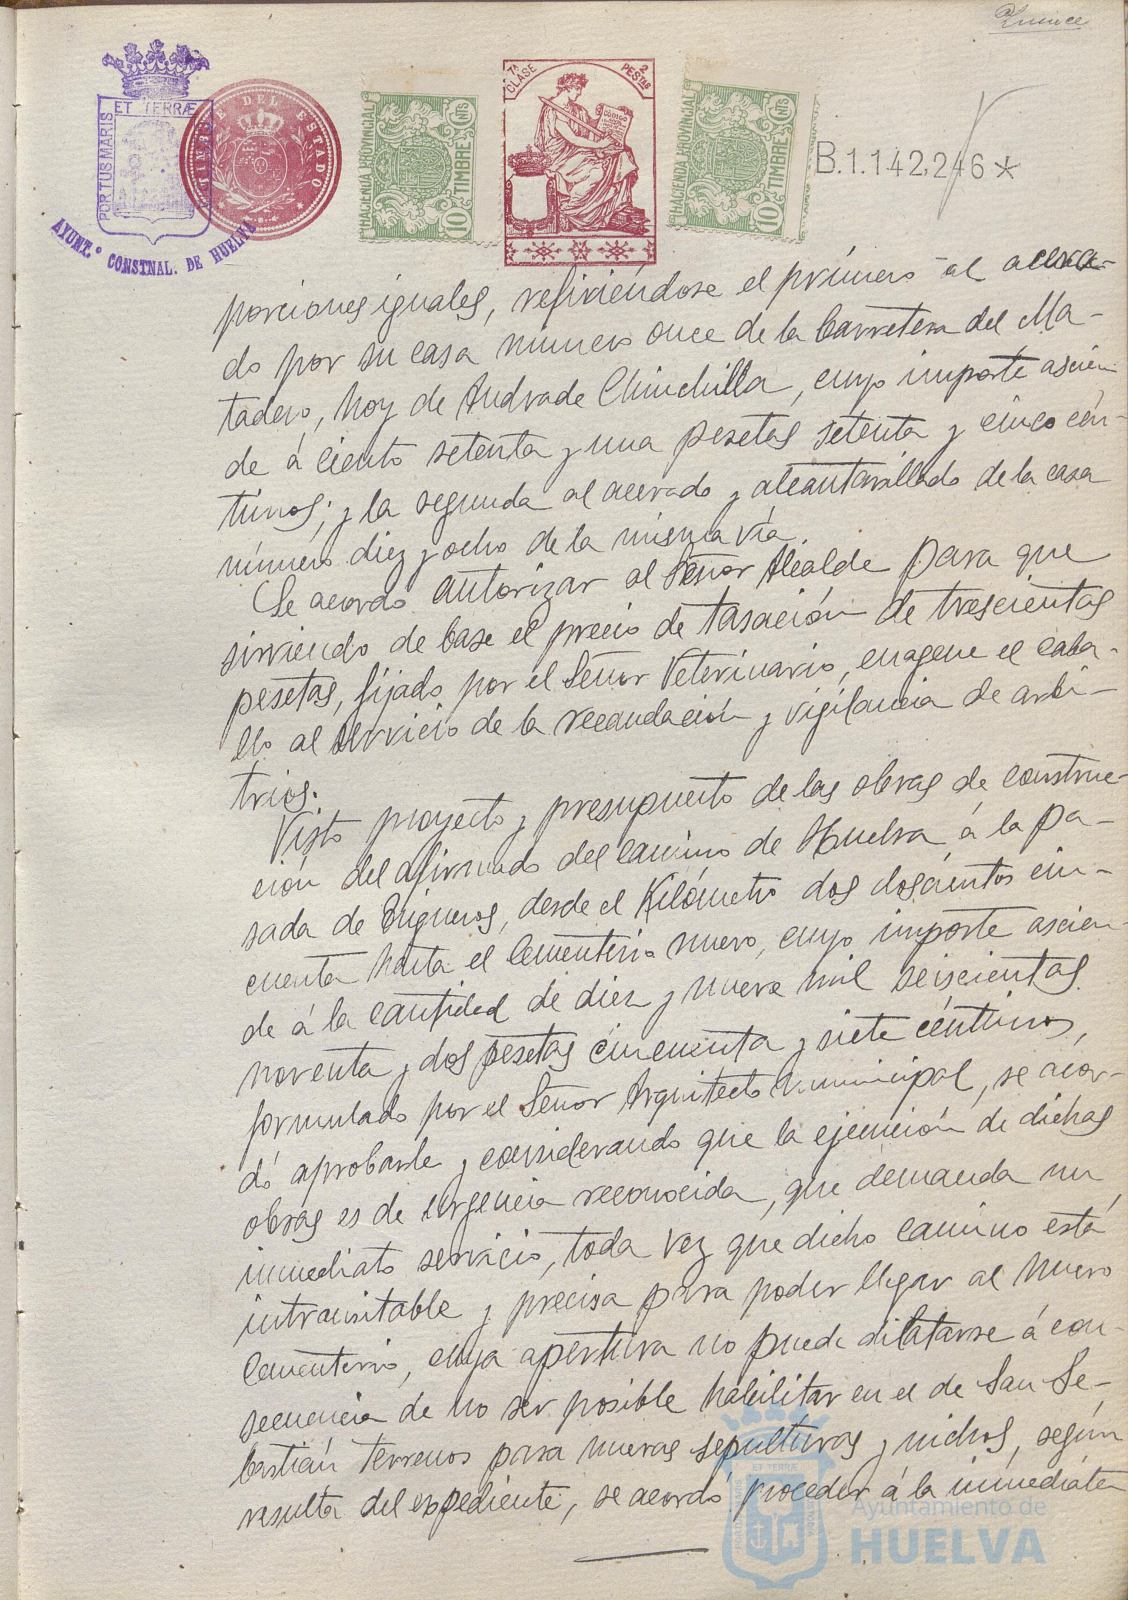 Quince
ET TERRÆ
PORTUS MARIS
AYUNT.º CONSTNAL. DE HUELVA
TIMBRE DEL ESTADO
HACIENDA PROVINCIAL
10 CTS
TIMBRE
7ª CLASE
2 PESTAS
CÓDIGO
HACIENDA PROVINCIAL
10 CTS
TIMBRE
B.1.142,246*
porciones iguales, refiriéndose el primero al acera-
do por su casa número once de la Carretera del Ma-
tadero, hoy de Andrade Chinchilla, cuyo importe ascien
de á ciento setenta y una pesetas setenta y cinco cén-
timos; y la segunda al acerado y alcantarillado de la casa
número diez y ocho de la misma vía.
Se acordó autorizar al Señor Alcalde para que
sirviendo de base el precio de tasación de trescientas
pesetas, fijado por el Señor Veterinario, enagene el caba-
llo al servicio de la recaudación y vigilancia de arbi-
trios.
Visto proyecto y presupuesto de las obras de construc-
ción del afirmado del camino de Huelva á la pa-
sada de Trigueros, desde el Kilómetro dos doscientos cin-
cuenta hasta el Cementerio nuevo, cuyo importe ascien-
de á la cantidad de diez y nueve mil seiscientas
noventa y dos pesetas cincuenta y siete céntimos,
formulado por el Señor Arquitecto municipal, se acor-
dó aprobarle y considerando que la ejecución de dichas
obras es de urgencia reconocida, que demanda un
inmediato servicio, toda vez que dicho camino está
intransitable y precisa para poder llegar al nuevo
Cementerio, cuya apertura no puede dilatarse á con-
secuencia de no ser posible habilitar en el de San Se-
bastián terrenos para nuevas sepulturas y nichos, según
resulta del expediente, se acordó proceder á la inmediata
ET TERRÆ
Ayuntamiento de
HUELVA